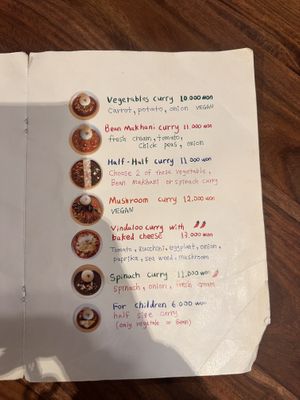 Vegetables curry 10.000 won
Carrot, potato, onion VEGAN
Bean Makhani curry 11.000 won
fresh cream, tomato,
chick peas, onion
Half-Half curry 11.000 won
Choose 2 of these vegetable,
Bean Makhani or spinach curry
Mushroom curry 12,000 won
VEGAN
Vindaloo curry with
baked cheese 13.000 won
Tomato, zucchini, eggplant, onion,
paprika, sea weed, mushroom
Spinach curry 11,000 won
spinach, onion, fresh cream
For children 6.000 won
half size curry
(only vegetable or Bean)